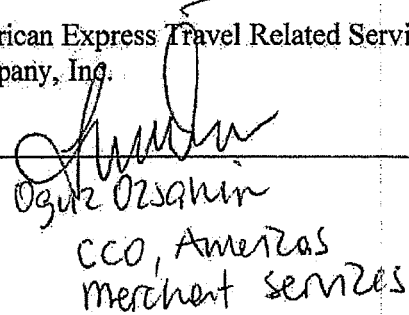 rican Express Travel Related Servi
pany, Inc.
Oguz Ozsahin
CCO, Americas
Merchant Services